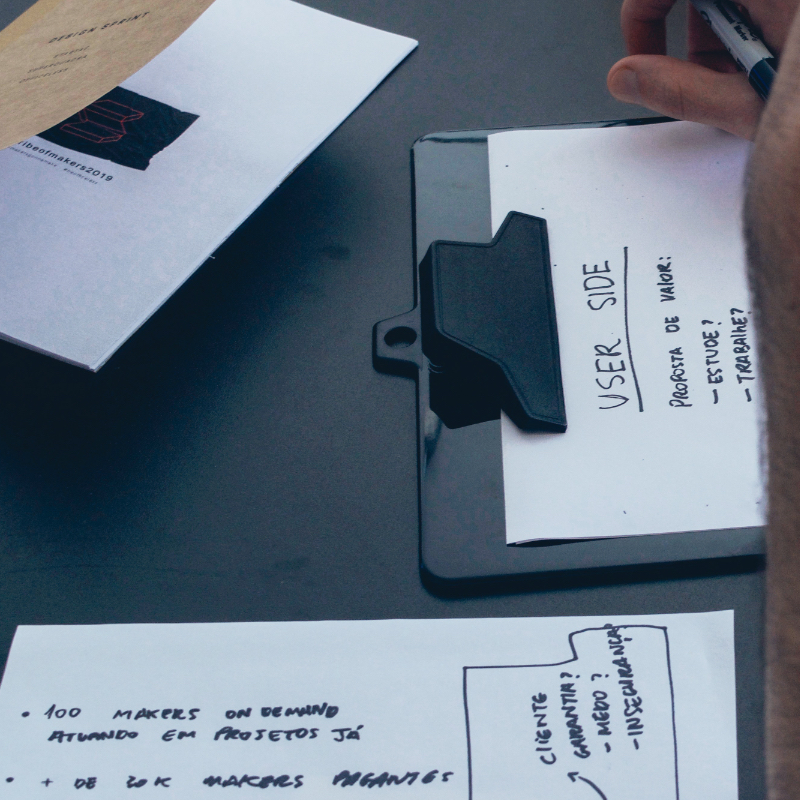 DESIGN SPRINT
ibeofmakers2019
USER SIDE
PROPOSTA DE VALOR:
- ESTUDE?
- TRABALHE?
• 100 MAKERS ON DEMAND
ATUANDO EM PROJETOS JÁ
• + DE 30K MAKERS PAGANTES
CLIENTE
GARANTIA?
- MEDO?
- INSEGURANÇA?